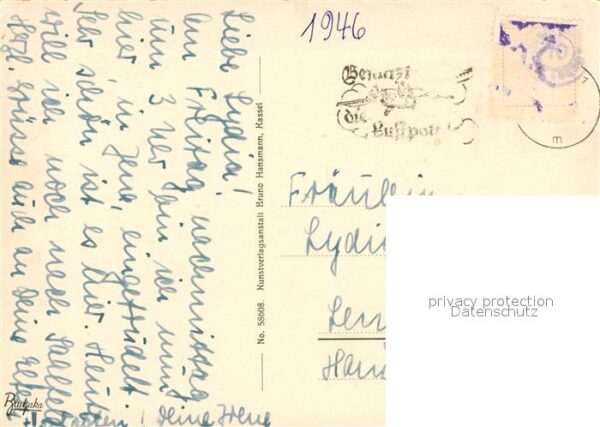 1946
Benutzt
die
Luftpost
Liebe Lydia!
Am Freitag nachmittag
um 3 Uhr bin ich nun
hier in Jena eingetrudelt
Sehr schön ist es hier. Heute
will ich noch nach
Herzl. Grüsse auch an Deine
! Deine Irene
No. 58608. Kunstverlagsanstalt Bruno Hansmann, Kassel
Fräulein
Lydia
privacy protection
Datenschutz
Bruhaka
m